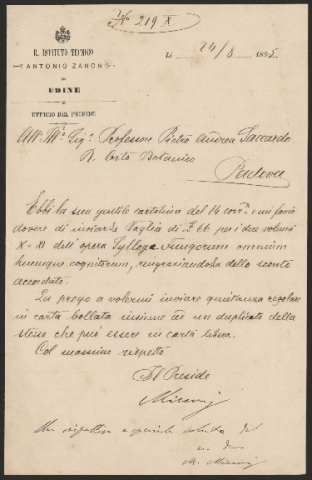 N 219 X
R. ISTITUTO TECNICO
ANTONIO ZANON
DI
UDINE
UFFICIO DEL PRESIDE
li 24/8 1895
All' Ill. Sig. Professore Pietro Andrea Saccardo
R. Orto Botanico
Padova
Ebbi la sua gentile cartolina del 14 corr. e mi faccio
dovere di inviarle Vaglia di £ 66 per i due volumi
X - XI dell' opera Sylloge Fungorum omnium
hucusque cognitorum, ringraziandola dello sconto
accordato.
La prego a volermi inviare quitanza regolare
in carta bollata insieme ad un duplicato della
stessa che può essere in carta libera.
Col massimo rispetto
Il Preside
Misani
Un rispettoso e speciale saluto del
M. Misani